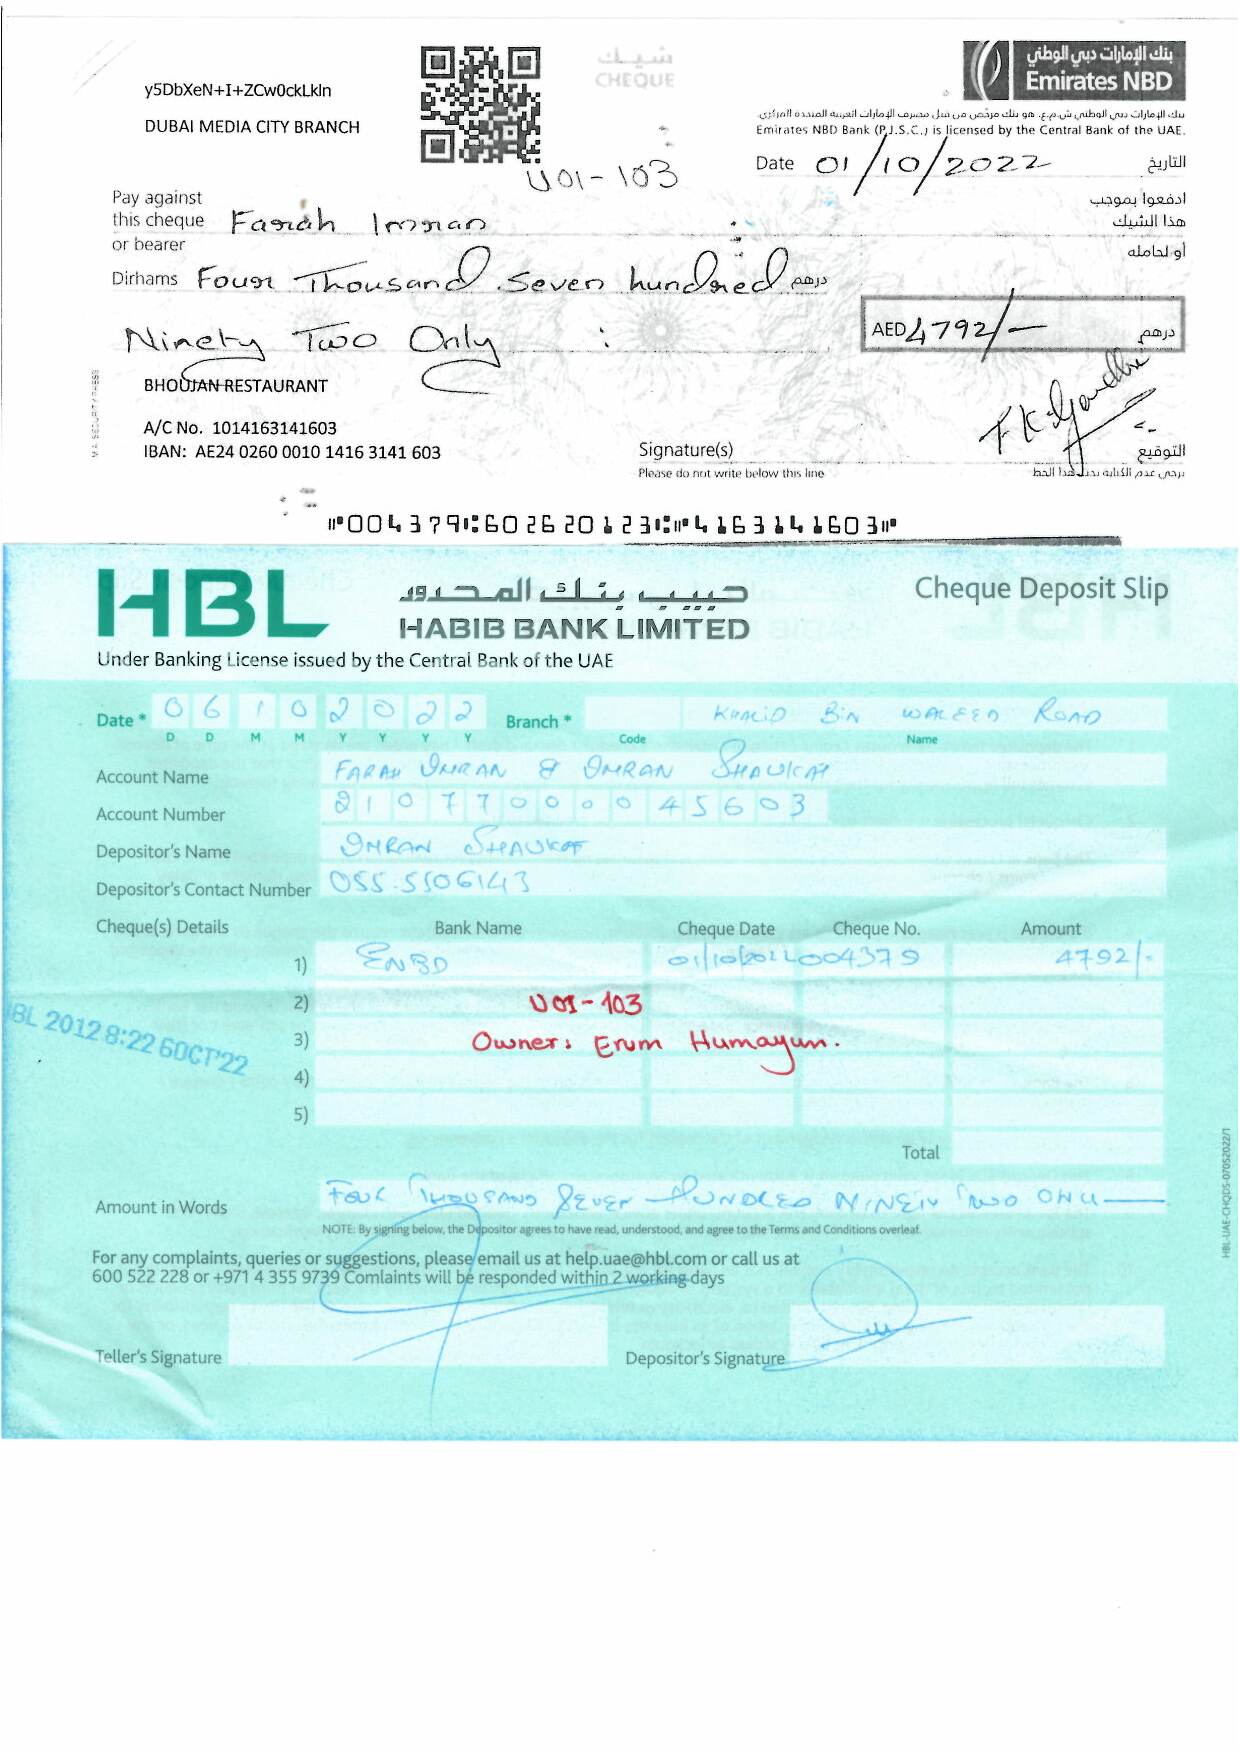 شيك
CHEQUE
بنك الإمارات دبي الوطني
Emirates NBD
y5DbXeN+I+ZCw0ckLkIn
DUBAI MEDIA CITY BRANCH
Emirates NBD Bank (P.J.S.C.) is licensed by the Central Bank of the UAE.
Date 01/10/2022 التاريخ
U01-103
Pay against
this cheque Farah Imran
or bearer
ادفعوا بموجب
هذا الشيك
أو لحامله
Dirhams Four Thousand Seven hundred درهم
Ninety Two Only
AED 4792/- درهم
BHOUJAN RESTAURANT
A/C No. 1014163141603
IBAN: AE24 0260 0010 1416 3141 603
Signature(s) F K Gandhi التوقيع
Please do not write below this line يرجى عدم الكتابة تحت هذا الخط
⑈004379⑆602620123⑆⑈4163141603⑈
HBL
حبيب بنك المحدود
HABIB BANK LIMITED
Cheque Deposit Slip
Under Banking License issued by the Central Bank of the UAE
Date * 06102022 Branch * KHALID BIN WALEED ROAD
D D M M Y Y Y Y Code Name
Account Name FARAH IMRAN & IMRAN SHAUKAT
Account Number 21077000045603
Depositor's Name IMRAN SHAUKAT
Depositor's Contact Number 055-5506143
Cheque(s) Details Bank Name Cheque Date Cheque No. Amount
1) ENBD 01/10/2022 004379 4792/-
2) U01-103
3) Owner: Erum Humayun.
4)
5)
HBL 2012 8:22 6OCT'22
Total
Amount in Words FOUR THOUSAND SEVEN HUNDRED NINETY TWO ONLY
NOTE: By signing below, the Depositor agrees to have read, understood, and agree to the Terms and Conditions overleaf.
For any complaints, queries or suggestions, please email us at help.uae@hbl.com or call us at
600 522 228 or +971 4 355 9739 Comlaints will be responded within 2 working days
Teller's Signature Depositor's Signature
HBL-UAE-CHQDS-07052022/1